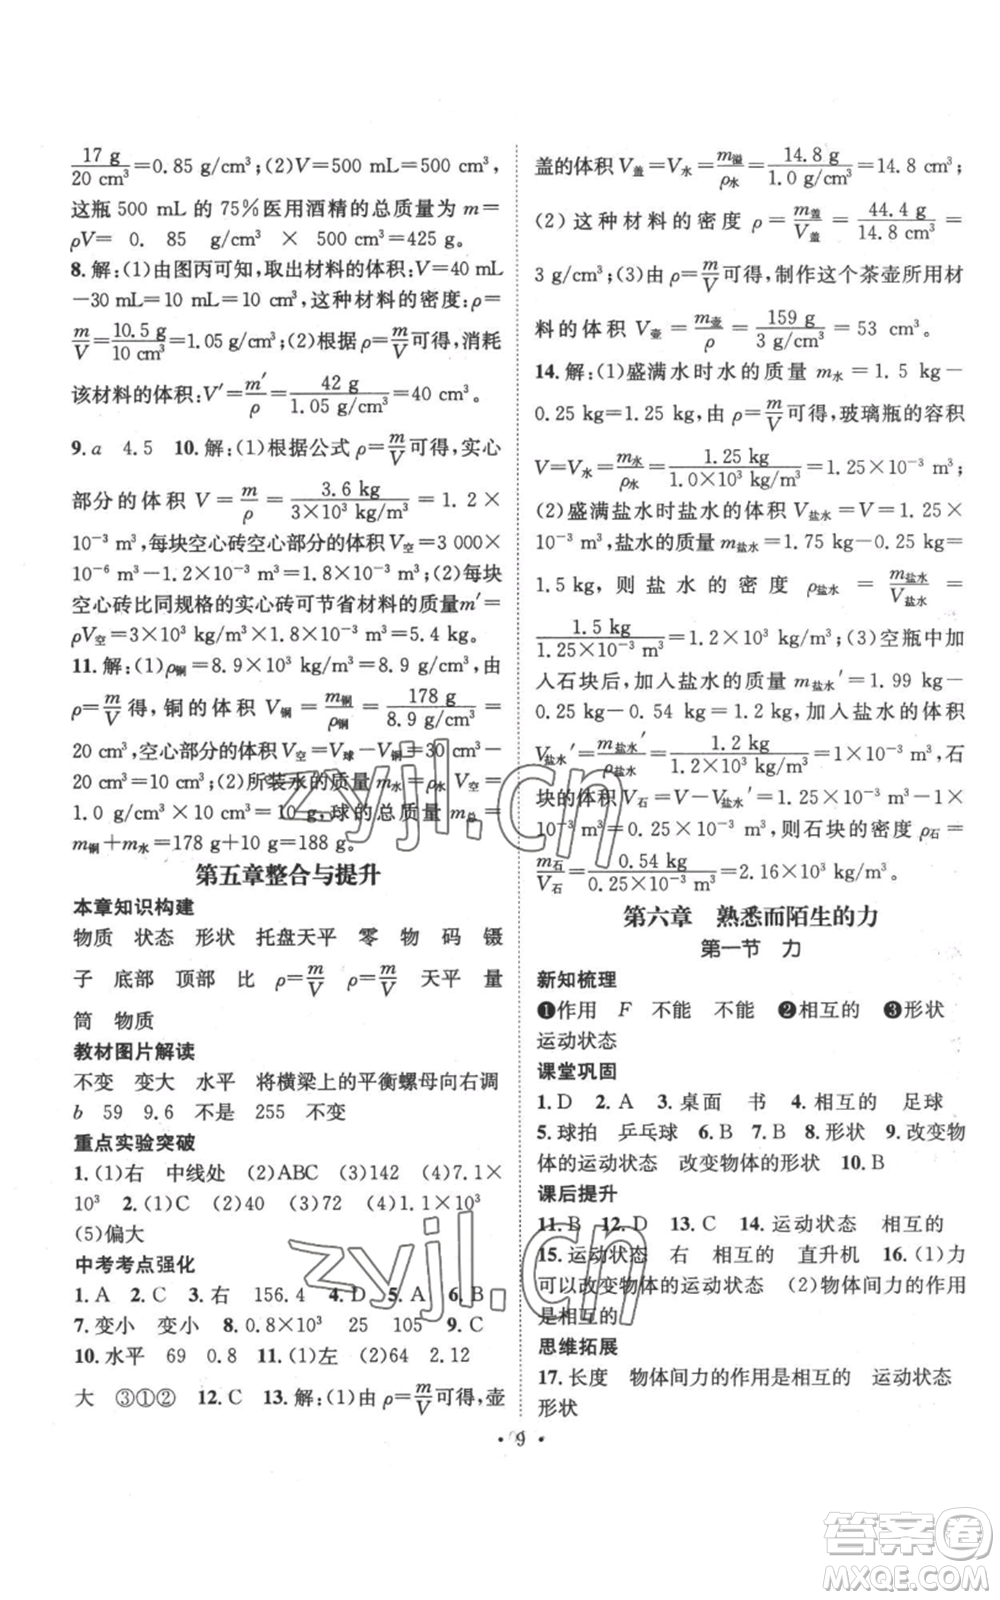 17 g/20 cm³=0.85 g/cm³;(2)V=500 mL=500 cm³,
这瓶 500 mL 的 75%医用酒精的总质量为 m=
ρV= 0. 85 g/cm³ × 500 cm³=425 g。
8.解:(1)由图丙可知,取出材料的体积:V=40 mL
-30 mL=10 mL=10 cm³,这种材料的密度:ρ=
m/V=10.5 g/10 cm³=1.05 g/cm³;(2)根据 ρ=m/V可得,消耗
该材料的体积:V′=m′/ρ=42 g/1.05 g/cm³=40 cm³。
9.a 4.5 10.解:(1)根据公式 ρ=m/V可得,实心
部分的体积 V=m/ρ=3.6 kg/3×10³ kg/m³=1.2×
10⁻³ m³,每块空心砖空心部分的体积 V空=3 000×
10⁻⁶ m³-1.2×10⁻³ m³=1.8×10⁻³ m³;(2)每块
空心砖比同规格的实心砖可节省材料的质量m′=
ρV空=3×10³ kg/m³×1.8×10⁻³ m³=5.4 kg。
11.解:(1)ρ铜=8.9×10³ kg/m³=8.9 g/cm³,由
ρ=m/V可得,铜的体积 V铜=m铜/ρ铜=178 g/8.9 g/cm³=
20 cm³,空心部分的体积 V空=V球-V铜=30 cm³-
20 cm³=10 cm³;(2)所装水的质量 m水=ρ水 V空=
1.0 g/cm³×10 cm³=10 g,球的总质量 m总=
m铜+m水=178 g+10 g=188 g。
第五章整合与提升
本章知识构建
物质 状态 形状 托盘天平 零 物 码 镊
子 底部 顶部 比 ρ=m/V ρ=m/V 天平 量
筒 物质
教材图片解读
不变 变大 水平 将横梁上的平衡螺母向右调
b 59 9.6 不是 255 不变
重点实验突破
1.(1)右 中线处 (2)ABC (3)142 (4)7.1×
10³ 2.(1)C (2)40 (3)72 (4)1.1×10³
(5)偏大
中考考点强化
1.A 2.C 3.右 156.4 4.D 5.A 6.B
7.变小 变小 8.0.8×10³ 25 105 9.C
10.水平 69 0.8 11.(1)左 (2)64 2.12
大 ③①② 12.C 13.解:(1)由 ρ=m/V可得,壶
盖的体积 V盖=V水=m溢/ρ水=14.8 g/1.0 g/cm³=14.8 cm³;
(2)这种材料的密度 ρ=m盖/V盖=44.4 g/14.8 cm³=
3 g/cm³;(3)由 ρ=m/V可得,制作这个茶壶所用材
料的体积 V壶=m壶/ρ=159 g/3 g/cm³=53 cm³。
14.解:(1)盛满水时水的质量 m水=1.5 kg-
0.25 kg=1.25 kg,由 ρ=m/V可得,玻璃瓶的容积
V=V水=m水/ρ水=1.25 kg/1.0×10³ kg/m³=1.25×10⁻³ m³;
(2)盛满盐水时盐水的体积 V盐水=V=1.25×
10⁻³ m³,盐水的质量 m盐水=1.75 kg-0.25 kg=
1.5 kg,则盐水的密度 ρ盐水=m盐水/V盐水=
1.5 kg/1.25×10⁻³ m³=1.2×10³ kg/m³;(3)空瓶中加
入石块后,加入盐水的质量 m盐水′=1.99 kg-
0.25 kg-0.54 kg=1.2 kg,加入盐水的体积
V盐水′=m盐水′/ρ盐水=1.2 kg/1.2×10³ kg/m³=1×10⁻³ m³,石
块的体积 V石=V-V盐水′=1.25×10⁻³ m³-1×
10⁻³ m³=0.25×10⁻³ m³,则石块的密度 ρ石=
m石/V石=0.54 kg/0.25×10⁻³ m³=2.16×10³ kg/m³。
第六章 熟悉而陌生的力
第一节 力
新知梳理
❶作用 F 不能 不能 ❷相互的 ❸形状
运动状态
课堂巩固
1.D 2.A 3.桌面 书 4.相互的 足球
5.球拍 乒乓球 6.B 7.B 8.形状 9.改变物
体的运动状态 改变物体的形状 10.B
课后提升
11.B 12.D 13.C 14.运动状态 相互的
15.运动状态 右 相互的 直升机 16.(1)力
可以改变物体的运动状态 (2)物体间力的作用
是相互的
思维拓展
17.长度 物体间力的作用是相互的 运动状态
形状
·9·
zyjl.cn
zyjl.cn
答案圈
MXQE.COM